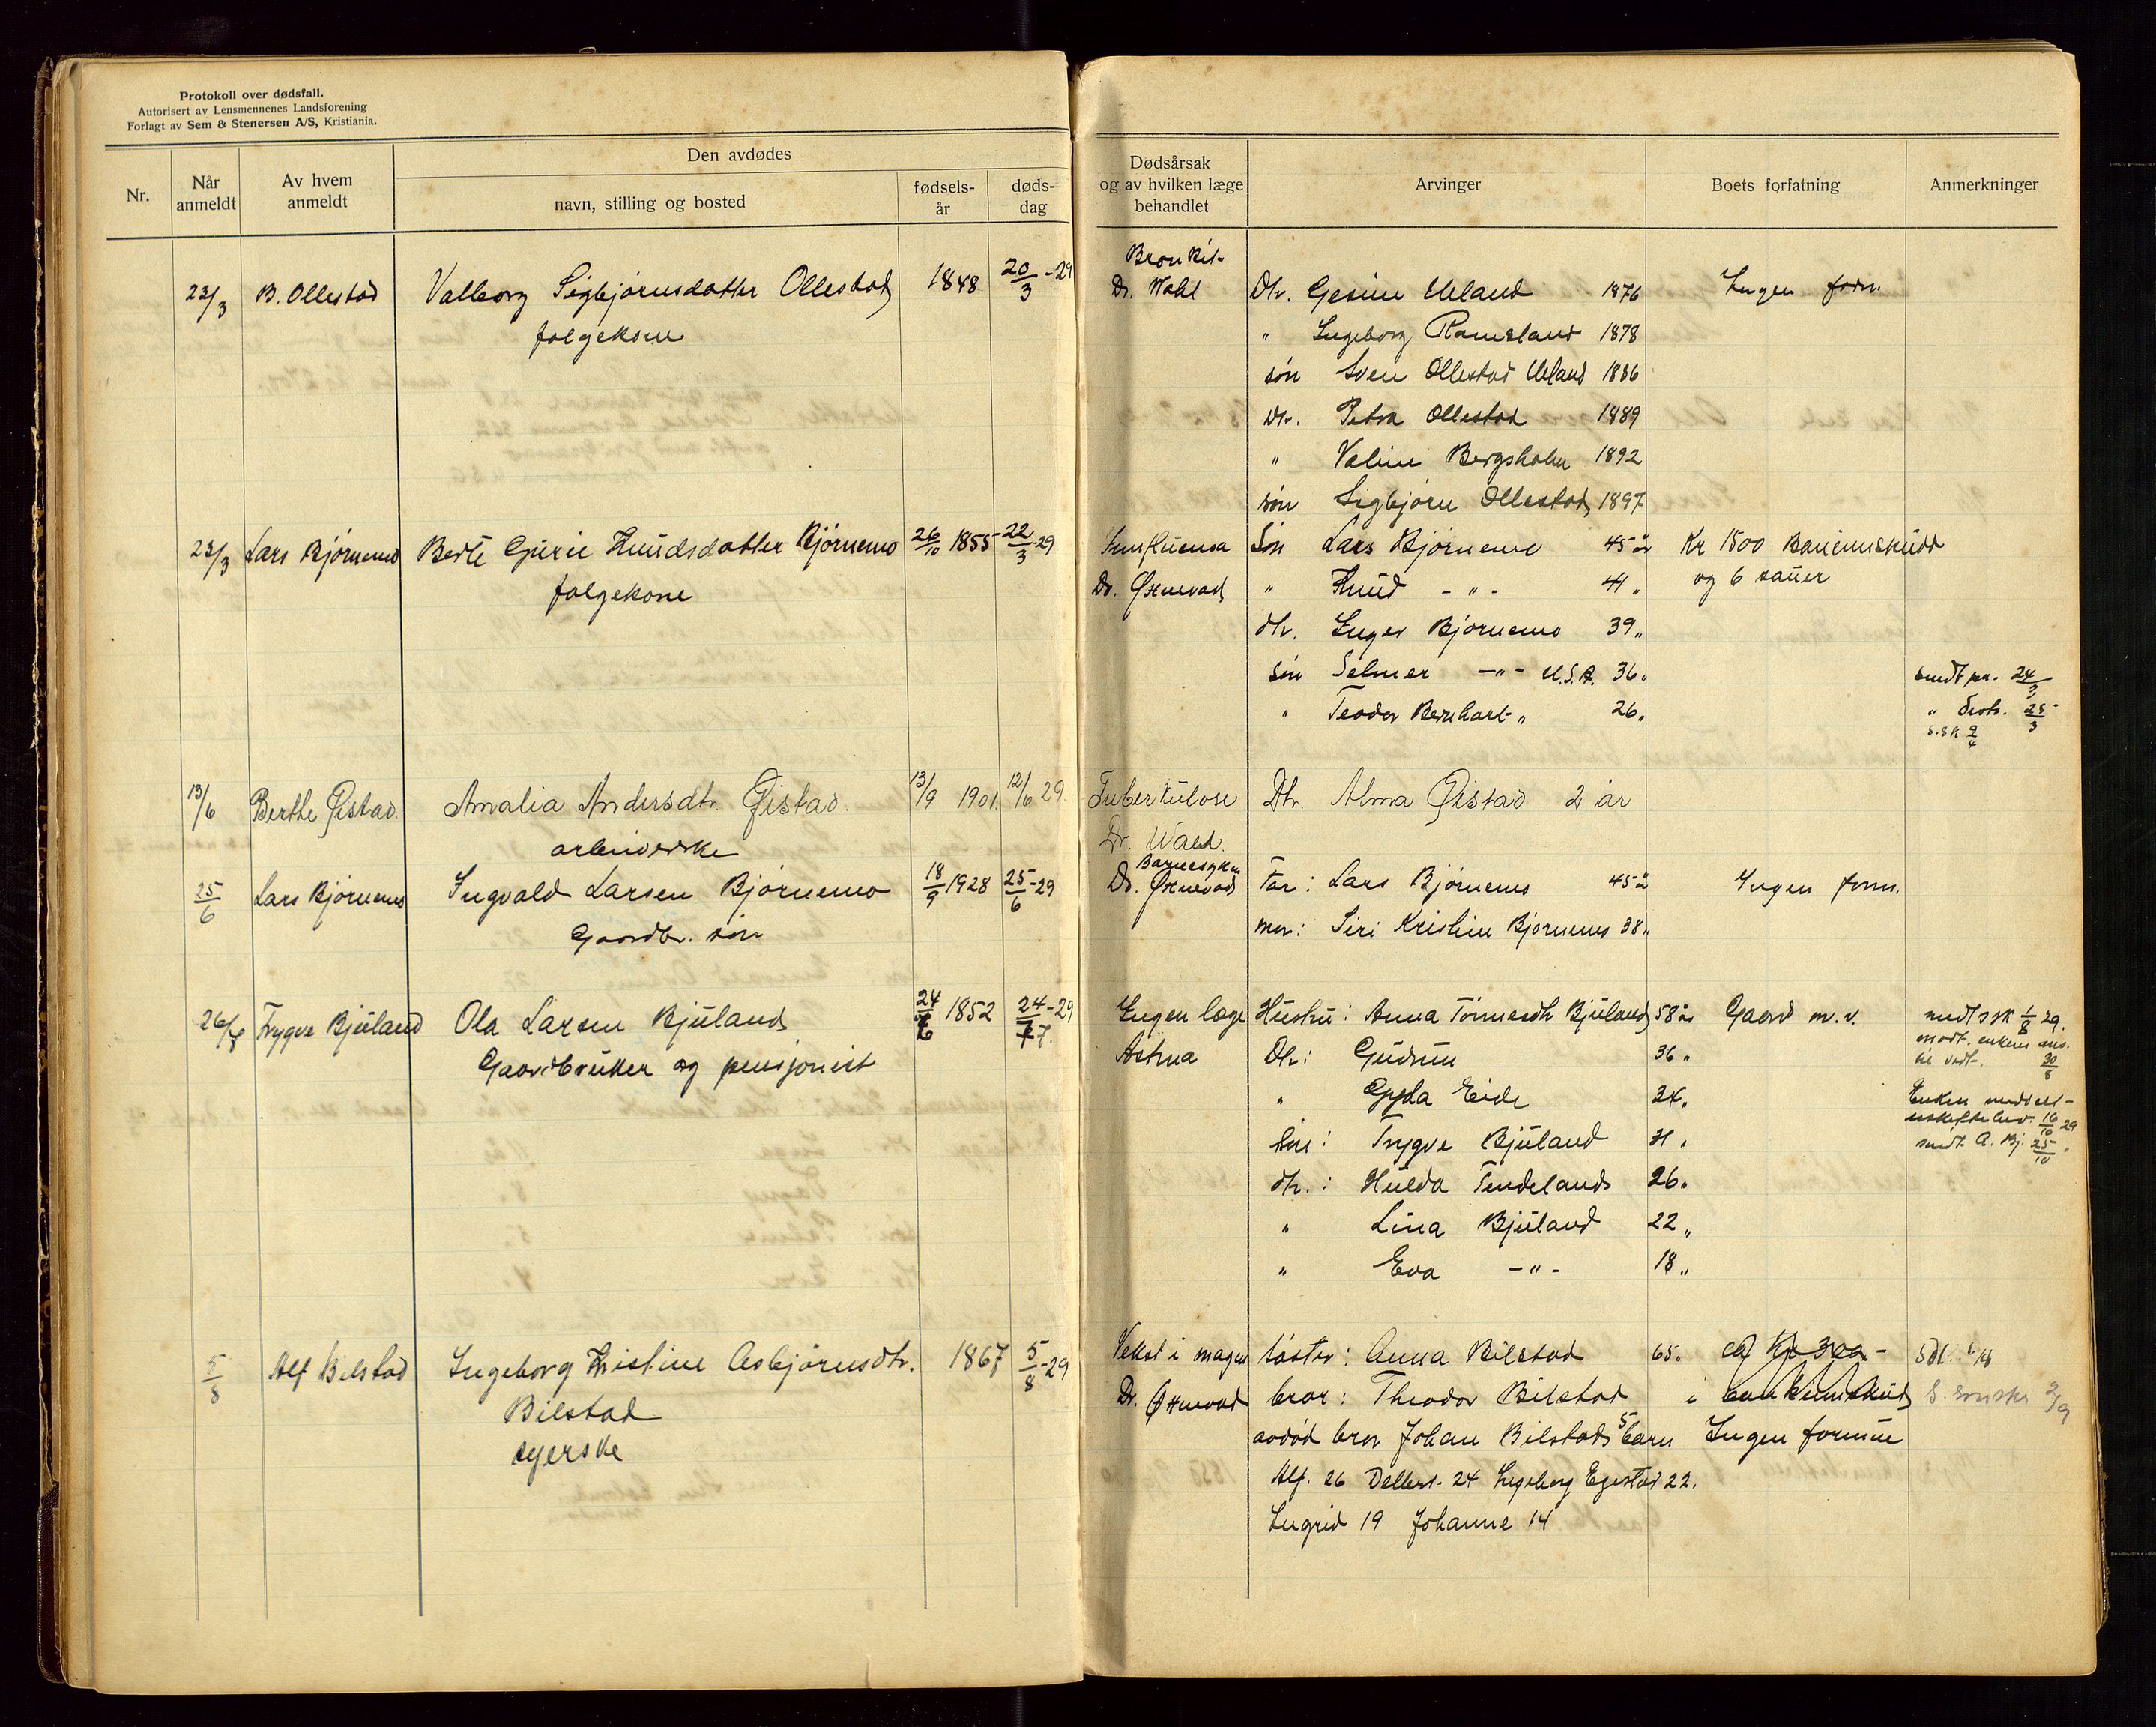 Protokoll over dødsfall.
Autorisert av Lensmennenes Landsforening
Forlagt av Sem & Stenersen A/S, Kristiania.
Nr.
Når anmeldt
Av hvem anmeldt
Den avdødes
navn, stilling og bosted
fødsels-år
døds-dag
Dødsårsak og av hvilken læge behandlet
Arvinger
Boets forfatning
Anmerkninger
23/3 B. Ollestad Valborg Sigbjørnsdatter Ollestad 1848 20/3-29
folgekone
Bronkit
Dr. Hohl Dtr. Gesine Ueland 1876 Ingen form.
" Ingeborg Ramsland 1878
søn Sven Ollestad Ueland 1886
Dtr. Petra Ollestad 1889
" Valine Bergsholm 1892
søn Sigbjørn Ollestad 1897
23/3 Lars Bjørnemo Berte Gurie Knudsdatter Bjørnemo 26/10 1855 22/3-29
folgekone
Influensa Søn Lars Bjørnemo 45 år Kr 1500 Bankinnskudd
Dr. Øknevad " Knud - " - 41 " og 6 sauer
dtr. Inger Bjørnemo 39 "
søn Selmer - " - U.S.A. 36 " sendt 24/3
" Teodor Bernhart " 26 " " 25/3
s.sk 9/4
13/6 Berthe Øistad. Amalia Andersdtr. Øistad. 13/9 1901. 12/6 29.
arbeiderske
Tuberkulose Dtr. Alma Øistad 2 år
Dr. Wald.
25/6 Lars Bjørnemo Ingvald Larsen Bjørnemo 18/9 1928 25/6-29
Gaardbr. søn
Barnesyken
Dr. Øknevad Far: Lars Bjørnemo 45 år Ingen form.
mor: Siri Kristine Bjørnemo 38 "
26/8 Trygve Bjuland Ola Larsen Bjuland 24/6 1852 24/7-29
Gaardbruker og pensjonist
Ingen læge Hustru: Anna Tønnesdtr Bjuland 58 år Gaard m.v. sendt ssk 1/8 29.
Astma Dtr: Gudrun 36 "
" Gyda Eide 34 "
Søn: Trygve Bjuland 31 "
dtr.: Hulda Tendeland 26 "
" Lina Bjuland 22 "
" Eva - " - 18 "
modt. enkens ans.
30/8
Enken
16/10 29
sendt. A. Bj. 25/10.
5/8 Alf Bilstad Ingeborg Kristine Asbjørnsdtr. 1867 5/8-29
Bilstad
syerske
Vekst i magen søster: Anna Bilstad 65 "
Dr. Øknevad bror: Theodor Bilstad i bankinnskud
avdød bror Johan Bilstads 5 barn Ingen formue
Alf. 26 24 Ingeborg Egestad 22.
Ingrid 19 Johanne 14